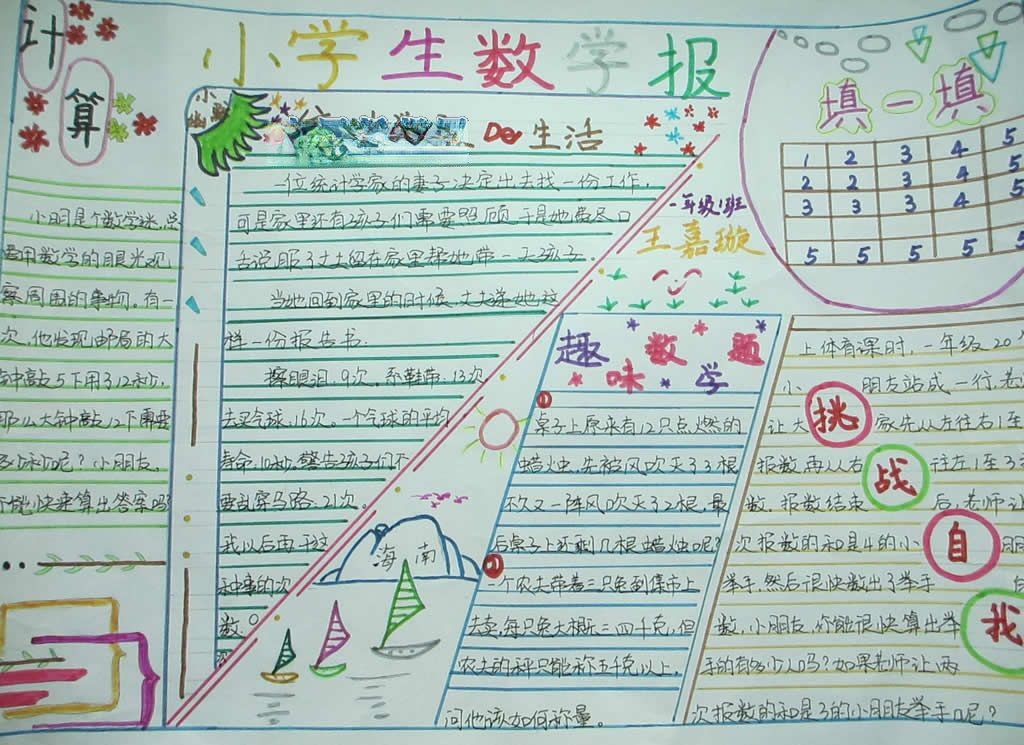 小学生数学报
计算
小明是个数学迷,总
用数学的眼光观
察周围的事物。有一
次,他发现邮局的大
钟敲5下用了12秒,
那么大钟敲12下需要
多少秒呢?小朋友,
你能快速算出答案吗
小幽
De生活
一位统计学家的妻子决定出去找一份工作,
可是家里还有2孩子们需要照顾,于是她费尽口
舌说服了丈夫留在家里帮她带一天孩子。
当她回到家里的时候,丈夫给她这
样一份报告书.
擦眼泪:9次。系鞋带:13次
去买气球:16次。一个气球的平均
寿命:10秒。警告2孩子们不
要乱穿马路:21次。
我以后再干这
种事的次
数:0
一年级1班
王嘉璇
海南
趣味数学题
①
桌子上原来有12只点燃的
蜡烛,先被风吹灭了3根
不久又一阵风吹灭了2根,最
后桌子上还剩几根蜡烛呢?
一个农夫带着三只兔到集市上
去卖,每只兔大概三四千克,但
农夫的秤只能称五千克以上,
问他该如何称量。
填一填
1 2 3 4 5
2 2 3 4 5
3 3 3 4 5
5 5 5 5 5
挑战自我
上体育课时,一年级20
小朋友站成一行,老
让大家先从左往右1至
报数,再从右往左1至3
数,报数结束后,老师让
次报数的和是4的小朋
举手,然后很快数出了举手
数,小朋友,你能很快算出举
手的有多少人吗?如果老师让两
次报数的和是3的小朋友举手呢?